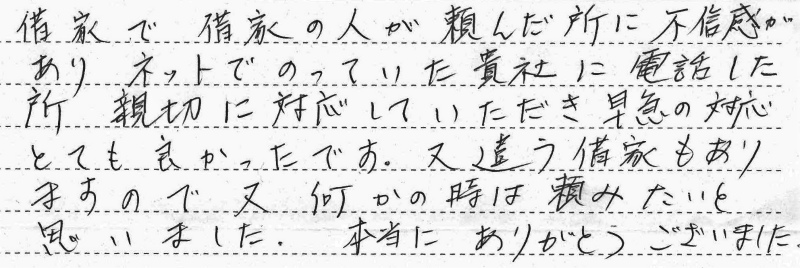 借家で 借家の人が 頼んだ所に 不信感が
あり ネットでのっていた貴社に 電話した
所 親切に対応していただき 早急の対応
とても良かったです。又違う借家もあり
ますので又 何かの時は頼みたいと
思いました. 本当に ありがとうございました.